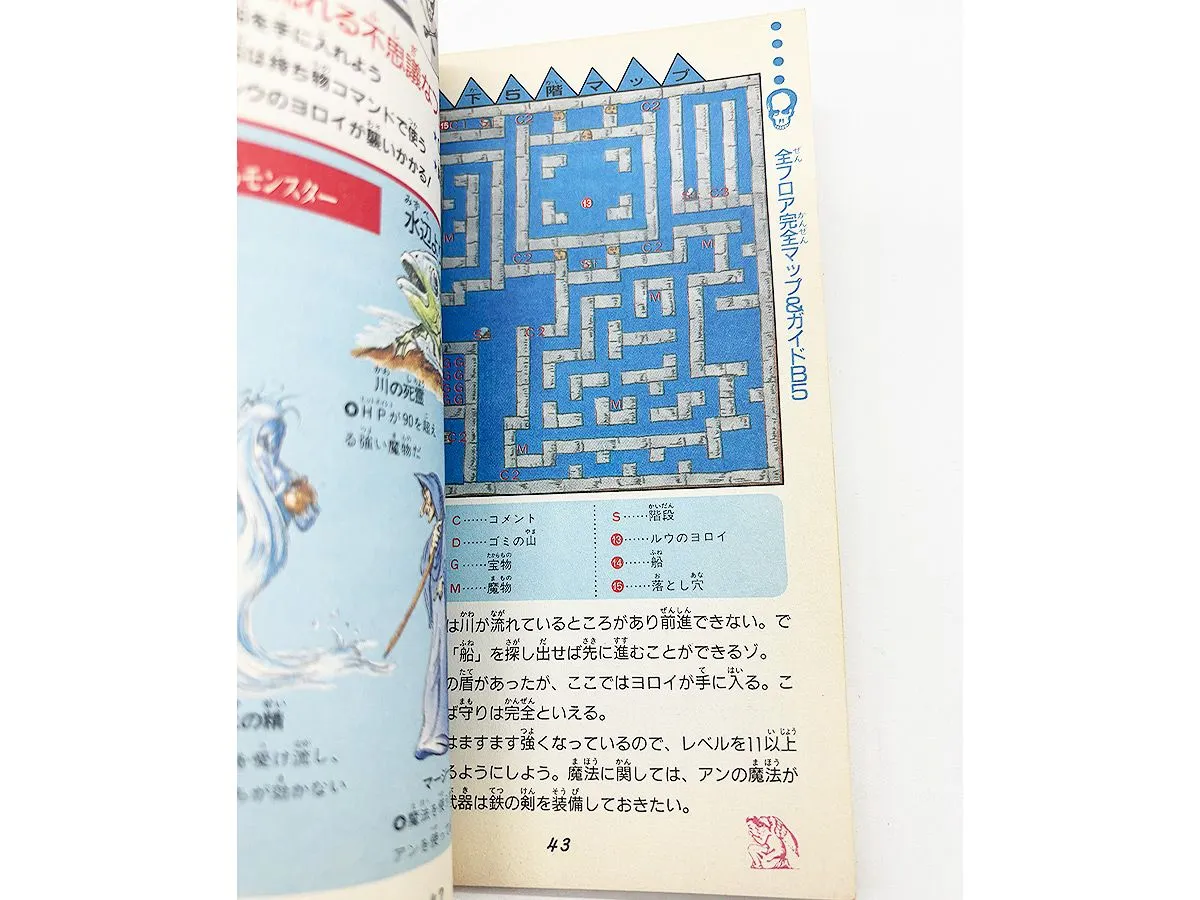 れる不思議な
を手に入れよう
は持ち物コマンドで使う
ルウのヨロイが襲いかかる!
モンスター
水辺
川の死霊
HPが90を超え
る強い魔物だ
の精
を受け流し、
が効かない
マージ
魔法を使
アンを使っ
下5階マップ
全フロア完全マップ&ガイドB5
15 C1
C2
C2
13
C3
C2
C2
M
M
M
S
C2
G G
G G
G G
G G
C2
M
M
C2
C……コメント
D……ゴミの山
G……宝物
M……魔物
S……階段
13……ルウのヨロイ
14……船
15……落とし穴
は川が流れているところがあり前進できない。で
「船」を探し出せば先に進むことができるゾ。
の盾があったが、ここではヨロイが手に入る。こ
ば守りは完全といえる。
はますます強くなっているので、レベルを11以上
るようにしよう。魔法に関しては、アンの魔法が
武器は鉄の剣を装備しておきたい。
43